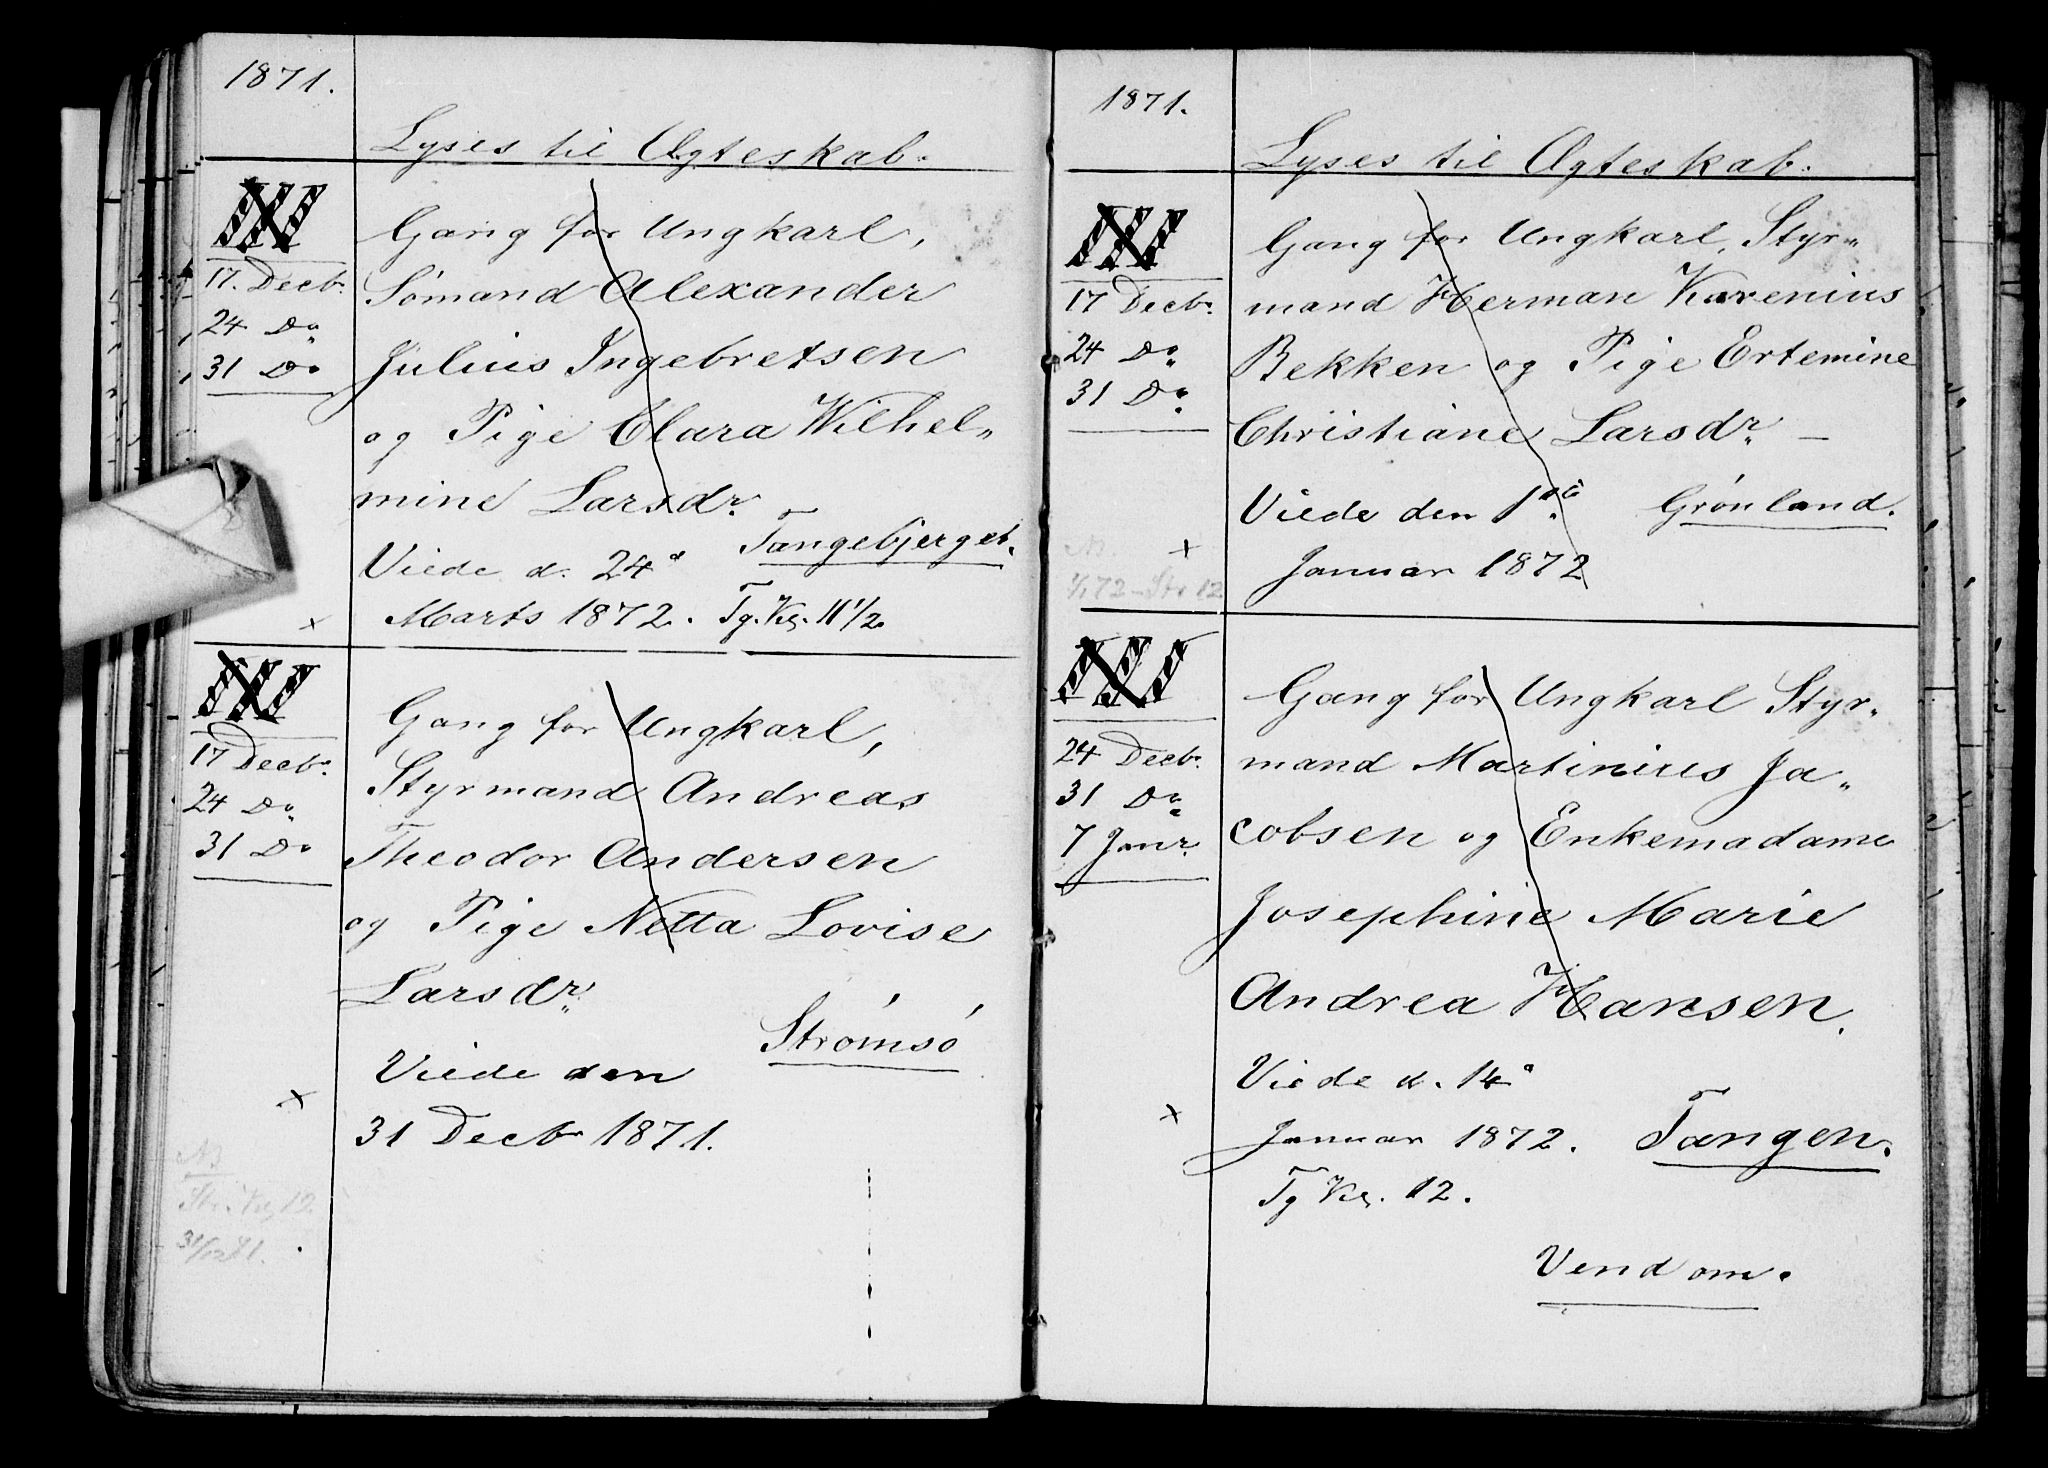 1871.
Lyses til Ægteskab.
17. Decbr.
24 Do
31 Do
Gang for Ungkarl,
Sømand Alexander
Julius Ingebretsen
og Pige Clara Wilhel„
mine Larsdr.
Tangebjerget.
Viede d. 24d
Marts 1872. Tg. Kl. 11 1/2.
x
17 Decbr.
24 Do
31 Do
Gang for Ungkarl,
Styrmand Andreas
Theodor Andersen
og Pige Netta Lovise
Larsdr.
Strømsø
Viede den
31 Decbr 1871.
x
31/12 71.
1871.
Lyses til Ægteskab.
17 Decbr.
24 Do
31 Do
Gang for Ungkarl, Styr„
mand Herman Karenius
Bekken og Pige Ertemine
Christiane Larsdr. —
Viede den 1ste Grønland.
Januar 1872
x
1/1 72 - Str 12
24 Decbr.
31 Do
7 Janr.
Gang for Ungkarl Styr„
mand Martinius Ja„
cobsen og Enkemadame
Josephine Marie
Andrea Hansen.
Viede d. 14d
x
Januar 1872. Tangen.
Tg Kl. 12.
Vend om.